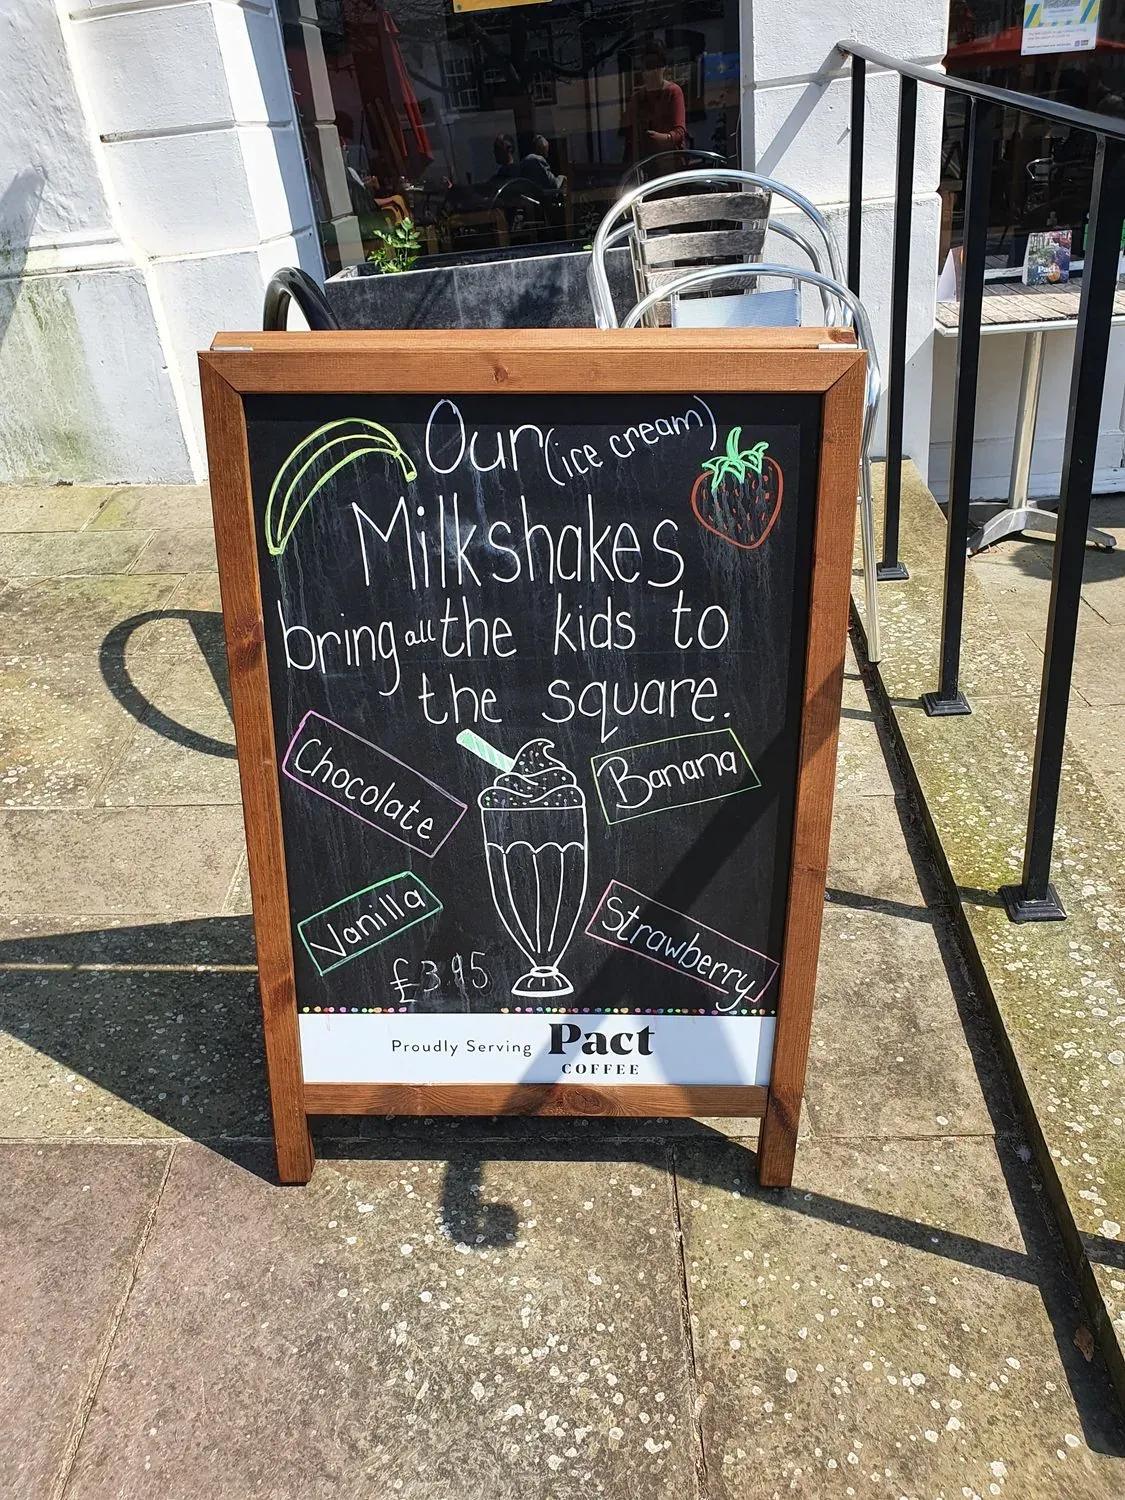 Our (ice cream)
Milkshakes
bring all the kids to
the square.
Chocolate
Banana
Vanilla
Strawberry
£3.95
Proudly Serving Pact
COFFEE
Pact